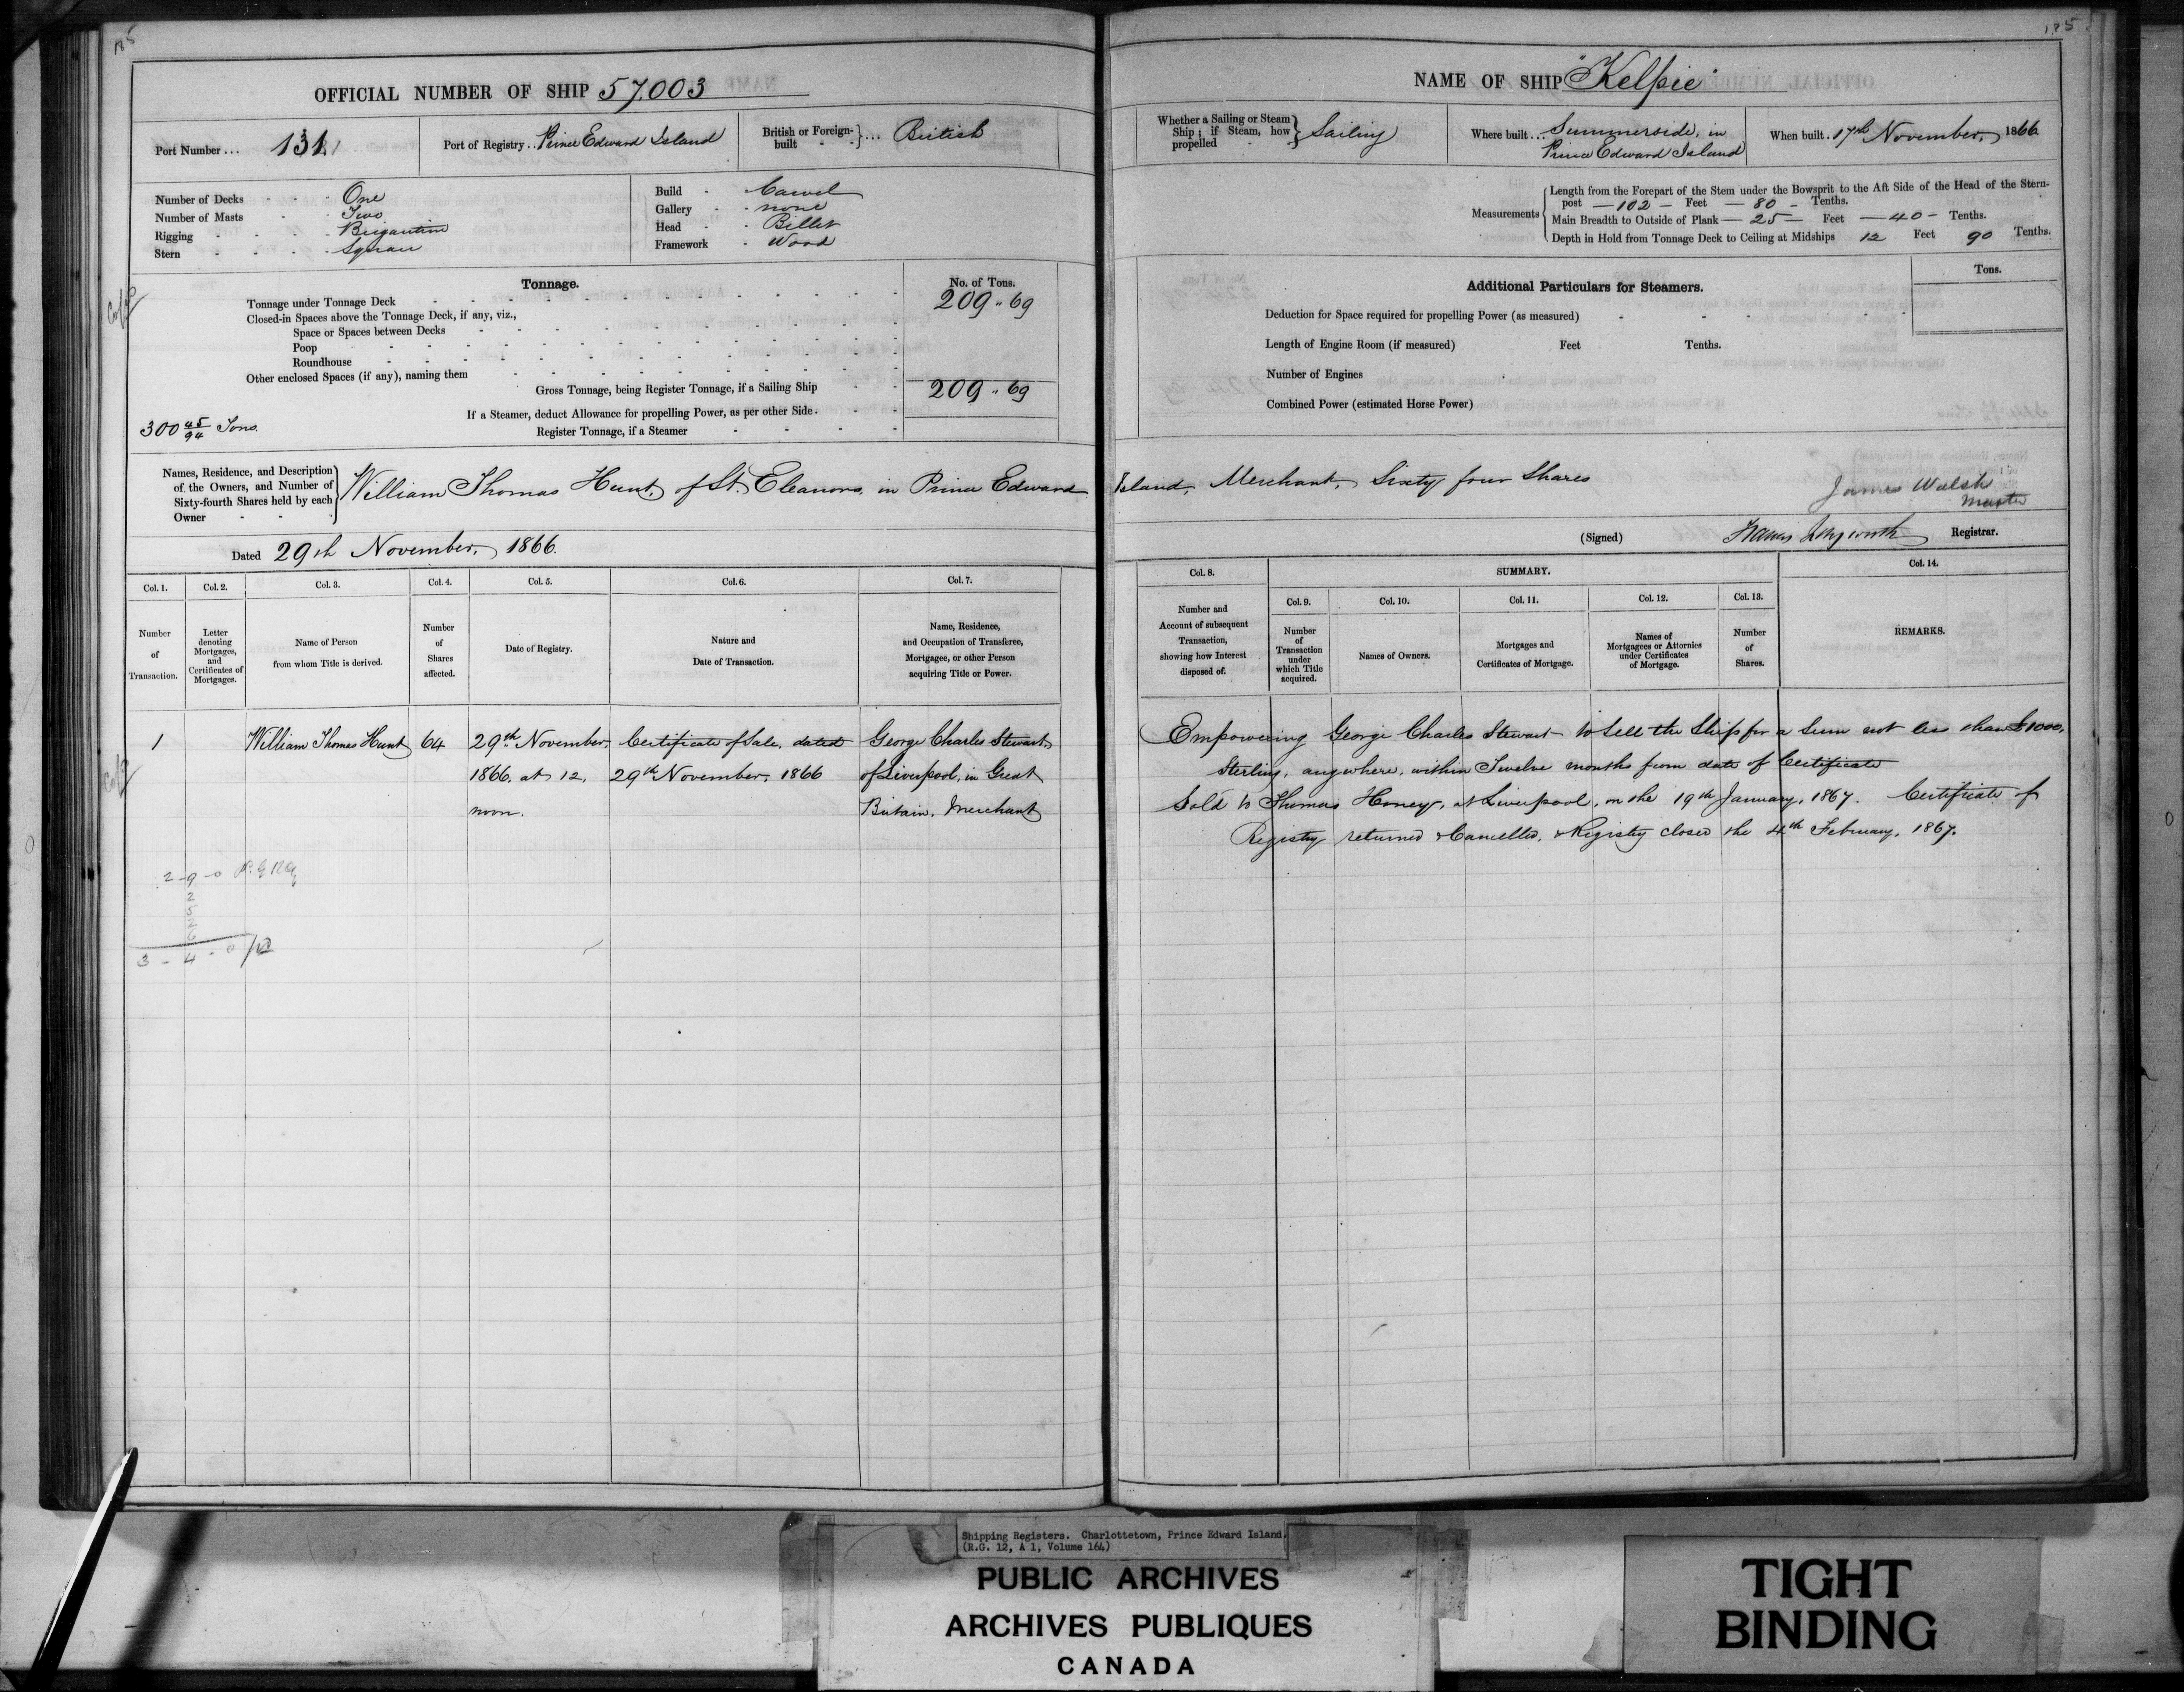 185
OFFICIAL NUMBER OF SHIP 57,003
Port Number ... 131
Port of Registry .. Prince Edward Island
British or Foreign-built ... British
Number of Decks - One
Number of Masts - Two
Rigging - Brigantine
Stern - Square
Build - Carvel
Gallery - none
Head - Billet
Framework - Wood
Tonnage.
No. of Tons.
Tonnage under Tonnage Deck 209 " 69
Closed-in Spaces above the Tonnage Deck, if any, viz.,
Space or Spaces between Decks
Poop
Roundhouse
Other enclosed Spaces (if any), naming them
Gross Tonnage, being Register Tonnage, if a Sailing Ship 209 " 69
If a Steamer, deduct Allowance for propelling Power, as per other Side
300 45/94 Tons.
Register Tonnage, if a Steamer
Names, Residence, and Description of the Owners, and Number of Sixty-fourth Shares held by each Owner
William Thomas Hunt, of St. Eleanors, in Prince Edward
Dated 29th November, 1866.
Col. 1. Col. 2. Col. 3. Col. 4. Col. 5. Col. 6. Col. 7.
Number of Transaction.
Letter denoting Mortgages, and Certificates of Mortgages.
Name of Person from whom Title is derived.
Number of Shares affected.
Date of Registry.
Nature and Date of Transaction.
Name, Residence, and Occupation of Transferee, Mortgagee, or other Person acquiring Title or Power.
1 William Thomas Hunt 64 29th November, Certificate of Sale, dated George Charles Stewart,
1866, at 12, 29th November, 1866 of Liverpool, in Great
noon. Britain, Merchant
2-9-0
2
5
2
6
3-4-0
185
NAME OF SHIP "Kelpie"
Whether a Sailing or Steam Ship; if Steam, how propelled Sailing
Where built ... Summerside, in
Prince Edward Island
When built . 17th November, 1866
Measurements
Length from the Forepart of the Stem under the Bowsprit to the Aft Side of the Head of the Stern-
post — 102 — Feet — 80 — Tenths.
Main Breadth to Outside of Plank — 25 — Feet — 40 — Tenths.
Depth in Hold from Tonnage Deck to Ceiling at Midships 12 Feet 90 Tenths.
Additional Particulars for Steamers.
Tons.
Deduction for Space required for propelling Power (as measured)
Length of Engine Room (if measured) Feet Tenths.
Number of Engines
Combined Power (estimated Horse Power)
Island, Merchant, Sixty four Shares
James Walsh
Master
(Signed) Francis Longworth Registrar.
Col. 8. SUMMARY. Col. 14.
Col. 9. Col. 10. Col. 11. Col. 12. Col. 13.
Number and Account of subsequent Transaction, showing how Interest disposed of.
Number of Transaction under which Title acquired.
Names of Owners.
Mortgages and Certificates of Mortgage.
Names of Mortgagees or Attornies under Certificates of Mortgage.
Number of Shares.
REMARKS.
Empowering George Charles Stewart to sell the Ship for a Sum not less than £1000,
Sterling, anywhere, within Twelve months from date of Certificate
Sold to Thomas Honey, at Liverpool, on the 19th January, 1867. Certificate of
Registry returned & Cancelled, & Registry closed the 4th February, 1867.
Shipping Registers. Charlottetown, Prince Edward Island.
(R.G. 12, A 1, Volume 164)
PUBLIC ARCHIVES
ARCHIVES PUBLIQUES
CANADA
TIGHT
BINDING